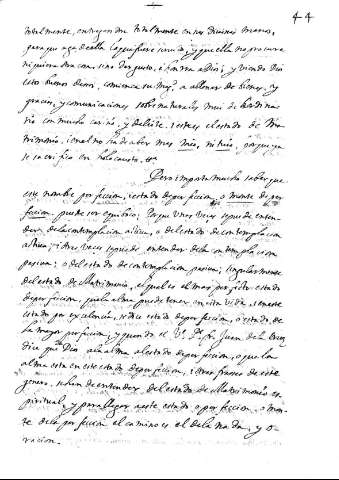 44
totalmente, entregando totalmente en sus divinas manos,
para que haga de ella lo que fuere servido, y que ella no procura
ni quiera otra cosa, sino dar gusto, i honra a Dios; y viendo Dios
estos buenos deseos, comienza su Mag.d a llenar de bienes, y
gracias, y comunicaciones sobrenaturales mui de hordina
rio con mucho cariño, y deleite. i este es el estado de Ma
trimonio, i en el no ha de aber mas mio, ni tuio, por que ya
se sacrifico en holocausto.
Pero importa mucho saber que
este nombre perfeccion, i estado de perfeccion, o monte de per
feccion, puede ser equiboco; Porque unas veces se puede enten
der de la contemplacion activa, o del estado de contemplacion
activa; i otras veces se puede entender de la contemplacion
pasiva; o del estado de contemplacion pasiva; singularmente
del estado de Matrimonio, el qual es el mas perfecto estado
de perfeccion, que la alma puede tener en esta vida, i en este
estado por excelencia, se dice estado de perfeccion, o estado de
la mayor perfeccion; y quando el V.e P.e fr. Juan de la Cruz,
dice que Dios a una alma al estado de perfeccion, o que la
alma esta en este estado de perfeccion, i otras frases de este
genero, se han de entender del estado de Matrimonio es
piritual, y para llegar a este estado o perfeccion, o mon
te de la perfeccion el camino es el de la nada, y o
racion.